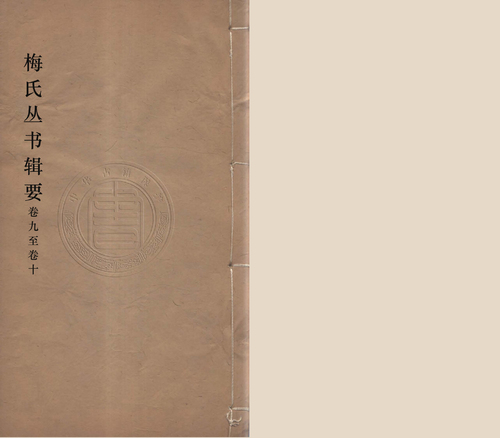 梅氏丛书辑要
卷九至卷十